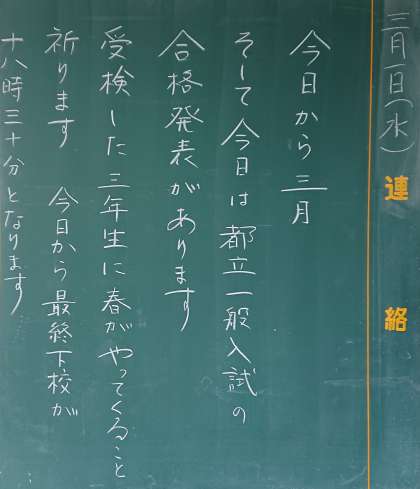 三月一日(水)
連絡
今日から三月
そして今日は都立一般入試の
合格発表があります
受検した三年生に春がやってくること
祈ります 今日から最終下校が
十八時三十分となります